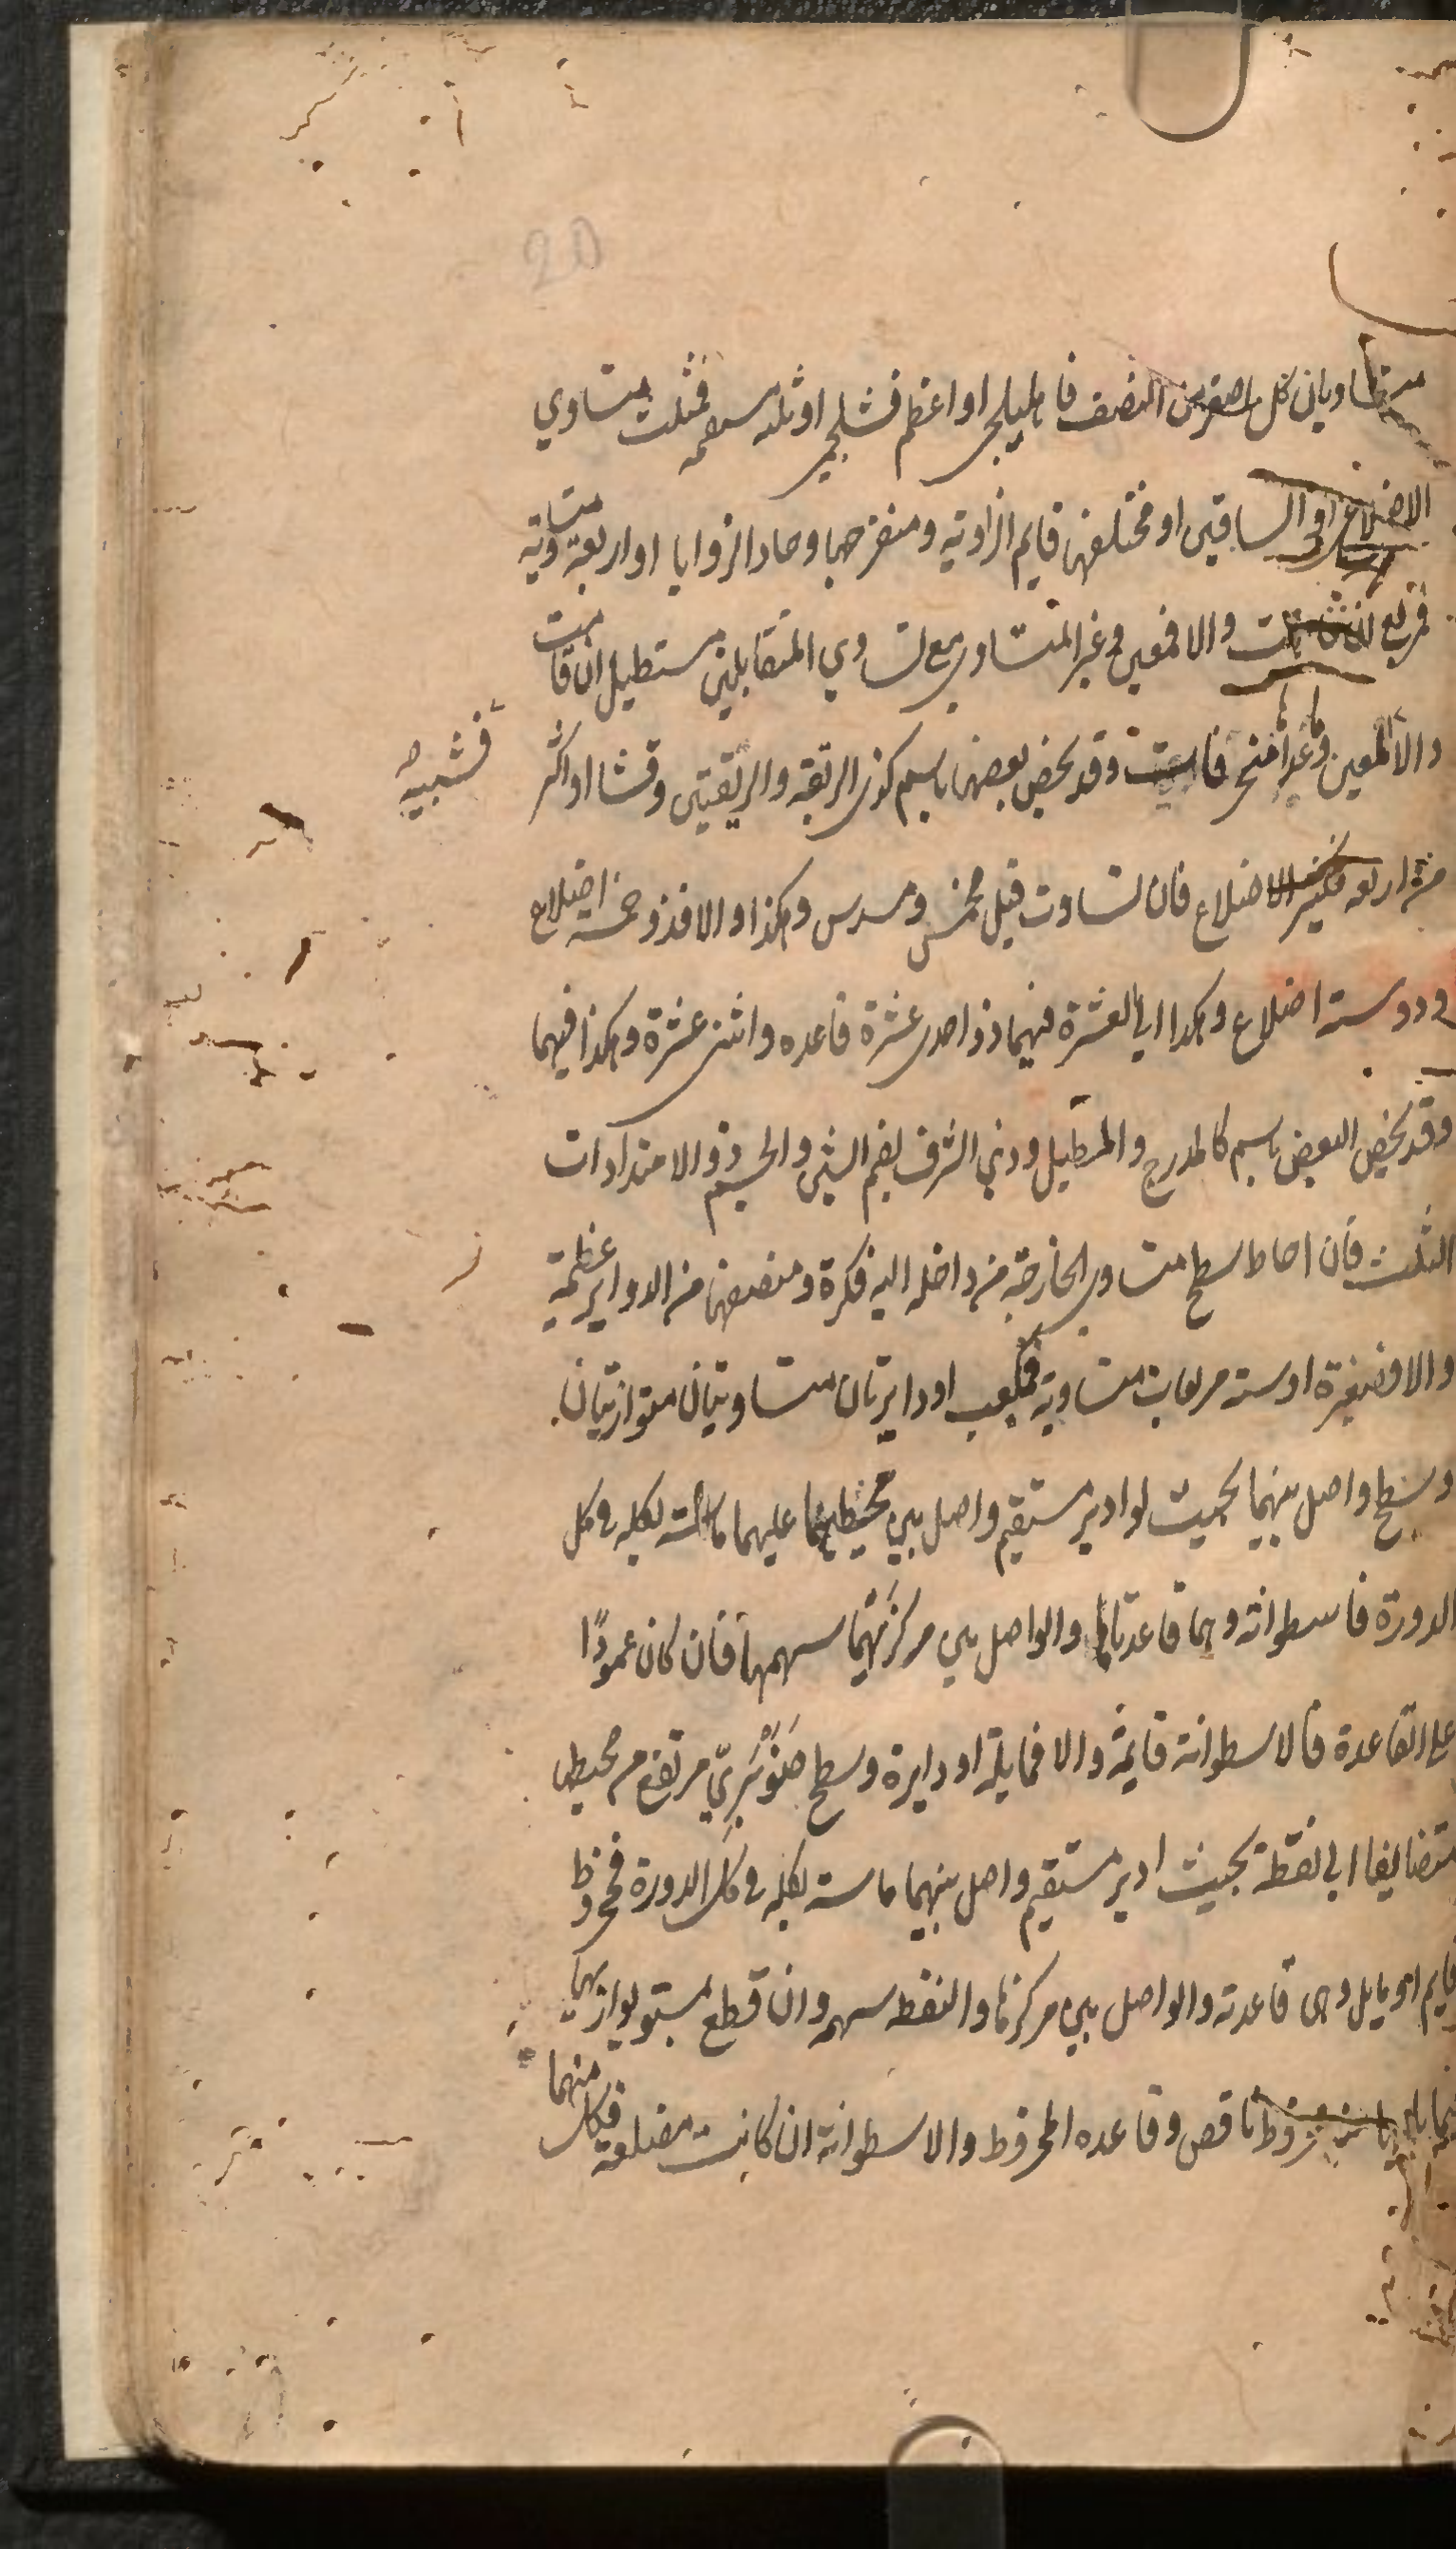 20
متساويان كل اصغر من النصف فاهليلجي او اعظم فشلجمي او ثلثه مستقيمه فمثلث متساوي
الاضلاع او الساقين او مختلفها قايم الزاوية ومنفرجها وحاد الزوايا او اربعة متساوية
فمربع ان قامت والا فمعين وغير المتساوي مع تساوي المتقابلين مستطيل ان قامت
والا فشبيه المعين وما عداها منحرفات وقد يخص بعضها باسم كذى الزنقة والزنقتين وقثا او اكثر
من اربعه فكثير الاضلاع فان تساوت قيل مخمس ومسدس وهكذا والا فذو خمسة اضلاع
وذو ستة اضلاع وهكذا الى العشرة فيهما ذو احدى عشرة قاعده واثنى عشرة وهكذا فيهما
وقد يخص البعض باسم كالمدرج والمطبل وذي الشرف بضم الشين والجسم ذو الامتدادات
الثلث فان احاط سطح متساوي الخارجة من داخله اليه فكرة ومنصفها من الدواير عظيمة
والا فصغيرة او ستة مربعات متساوية فمكعب او دايرتان متساويتان متوازيتان
وسطح واصل بينهما بحيث لو ادير مستقيم واصل بين محيطيهما عليهما ماسته بكله في كل
الدورة فاسطوانة وهما قاعدتاها والواصل بين مركزيهما سهمها فان كان عمودًا
على القاعدة فالاسطوانة قايمة والا فمايلة او دايرة وسطح صَنَوْبَرِيّ مرتفع من محيطها
متضايقا الى نقطة بحيث ادير مستقيم واصل بينهما ماسته بكله في كل الدورة فمخروط
قايم او مايل وهى قاعدته والواصل بين مركزها والنقطة سهمه وان قطع بمستو يوازيها
فما يليها مخروط ناقص وقاعده المخروط والاسطوانة ان كانت مضلعة فكل منهما